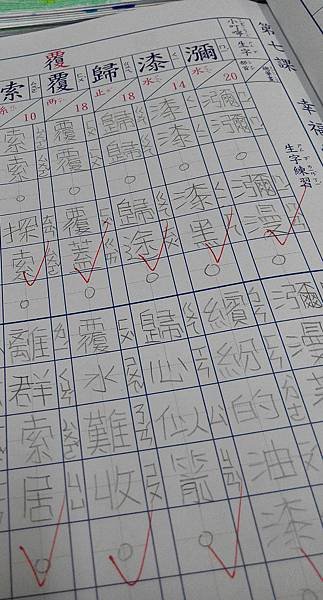 第七課 幸福
生字練習
生字
瀰 水 20
瀰瀰
瀰漫
瀰漫
漆 水 14
漆漆
漆黑
繽紛的油漆
歸 止 18
歸歸
歸途
歸心似箭
覆
覆 襾 18
覆覆
覆蓋
覆水難收
索 糸 10
索索
探索
離群索居